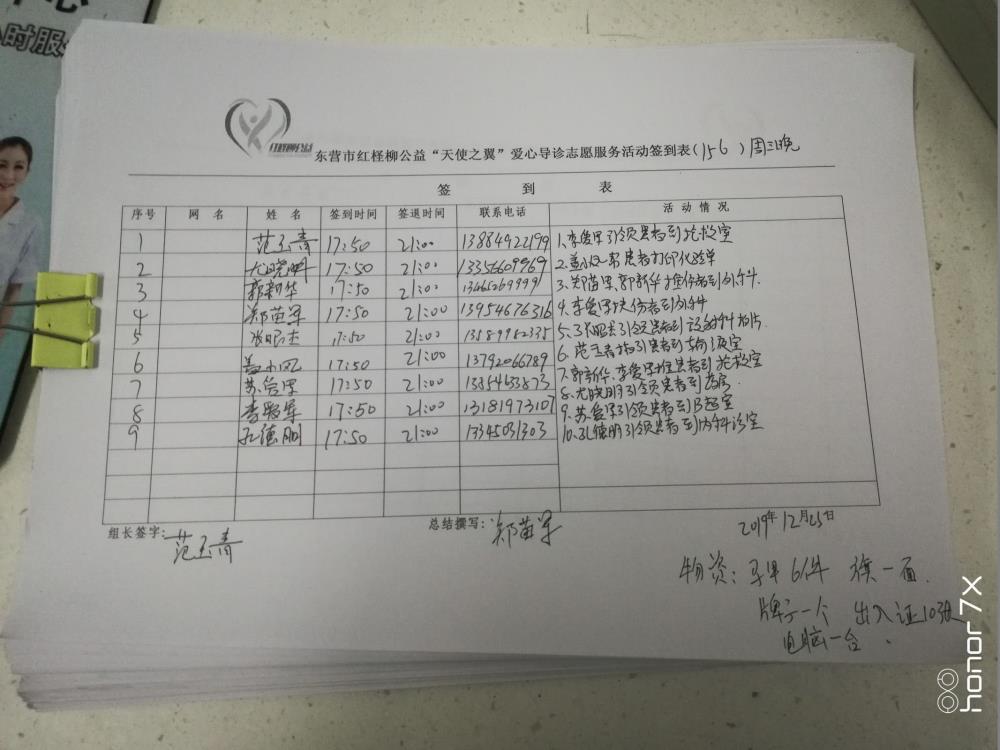 时服
红柽柳公益
东营市红柽柳公益“天使之翼”爱心导诊志愿服务活动签到表(156)周三晚
签 到 表
序号 网 名 姓 名 签到时间 签退时间 联系电话 活 动 情 况
1 范玉青 17:50 21:00 13884922199 1.李爱军引领患者到抢救室
2 尤晓明 17:50 21:00 13356609969 2.盖小凤帮患者打印化验单
3 郭新华 17:50 21:00 3.郑苗军.郭新华 患者到外科.
4 郑苗军 17:50 21:00 13954676316 4.李爱军 伤者到外科
5 17:50 21:00 13189982335 5. 引领患者到 拍片
6 盖小凤 17:50 21:00 13792066789 6.范玉青指引患者到输液室
7 苏爱军 17:50 21:00 7.郭新华.李爱军推患者到抢救室
8 李爱军 17:50 21:00 13181973107 8.尤晓明引领患者到药房
9 孔德明 17:50 21:00 13345031303 9.苏爱军引领患者到B超室
10.孔德明引领患者到内科诊室
组长签字: 范玉青 总结撰写: 郑苗军 2019年12月25日
物资:马甲6件 旗一面.
牌子一个 出入证10张
电脑一台.
honor 7X